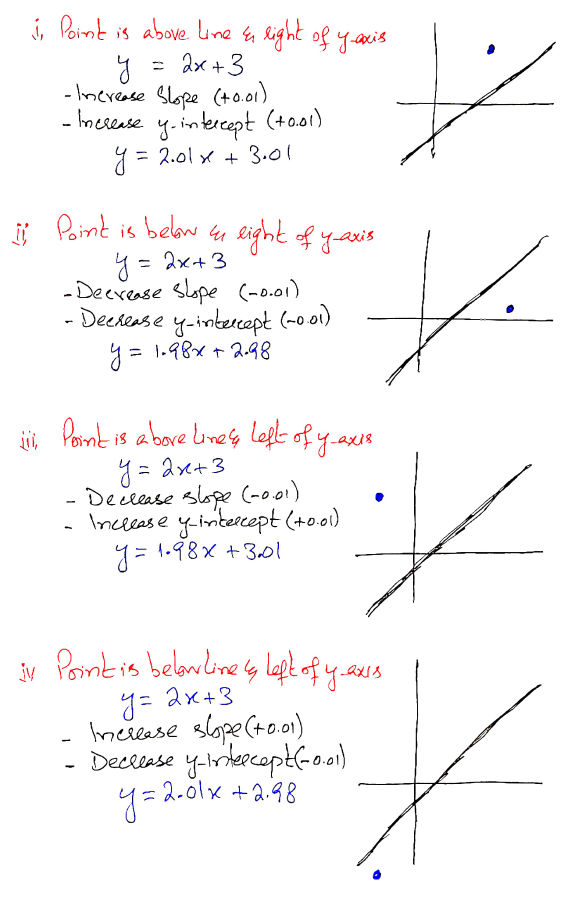 i, Point is above line & right of y-axis
y = 2x+3
- Increase Slope (+0.01)
- Increase y-intercept (+0.01)
y = 2.01x + 3.01
ii, Point is below & right of y-axis
y = 2x+3
- Decrease Slope (-0.01)
- Decrease y-intercept (-0.01)
y = 1.98x + 2.98
iii, Point is above line & left of y-axis
y = 2x+3
- Decrease slope (-0.01)
- Increase y-intercept (+0.01)
y = 1.98x + 3.01
iv Point is below line & left of y-axis
y = 2x+3
- Increase slope (+0.01)
- Decrease y-intercept (-0.01)
y = 2.01x + 2.98